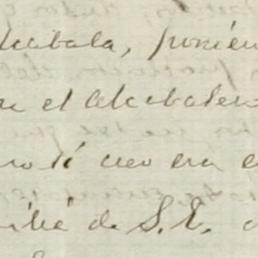 lcabala, ponién
el Alcabalero
no sí creo era
de S. E.